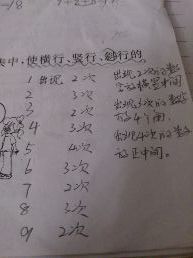 -18
中,使横行、竖行、斜行的
1 出现 2次
2 3次
3 2次
4 3次
5 4次
6 3次
7 2次
8 3次
9 2次
出现2次的数
出现3次的数
出现4次的数
正中间。